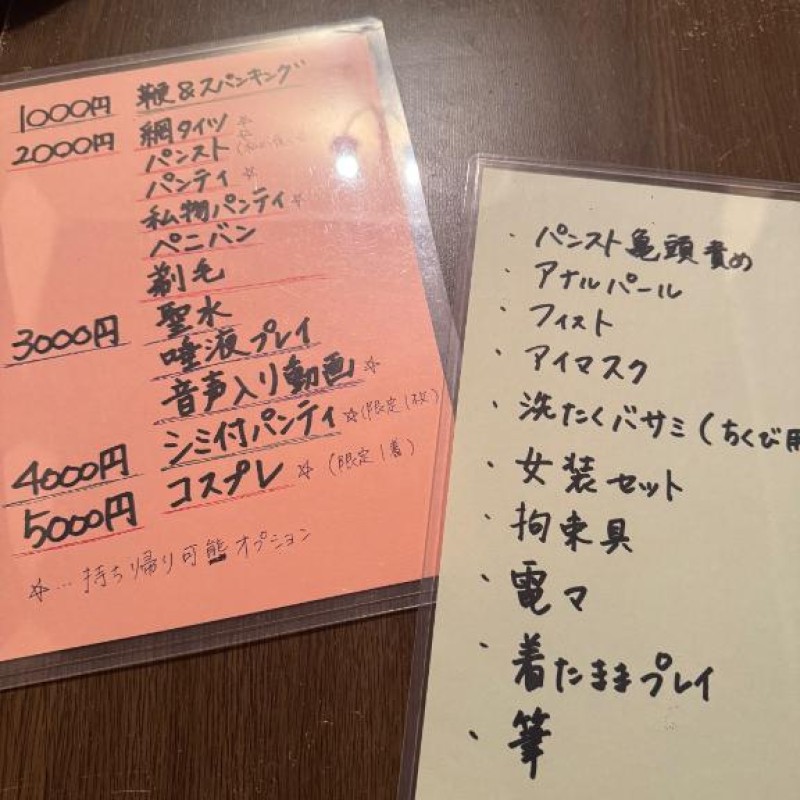 1000円 鞭&スパンキング
2000円 網タイツ ☆
パンスト
パンティ ☆
私物パンティ ☆
ペニバン
剃毛
3000円 聖水
唾液プレイ
音声入り動画 ☆
4000円 シミ付パンティ ☆(限定1枚)
5000円 コスプレ ☆(限定1着)
☆…持ち帰り可能オプション
・パンスト亀頭責め
・アナルパール
・フィスト
・アイマスク
・洗たくバサミ(ちくび用
・女装セット
・拘束具
・電マ
・着たままプレイ
・筆